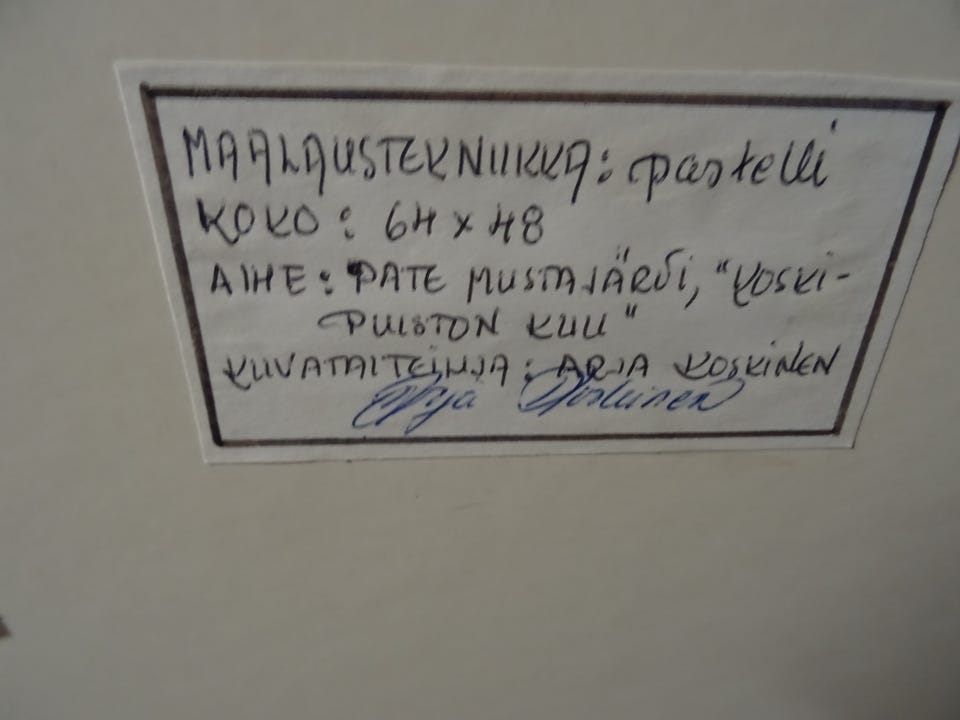 MAALAUSTEKNIIKKA: pastelli
KOKO: 64 x 48
AIHE: PATE MUSTAJÄRVI, "KOSKI-
PUISTON KUU"
KUVATAITEILIJA: ARJA KOSKINEN
Arja Koskinen